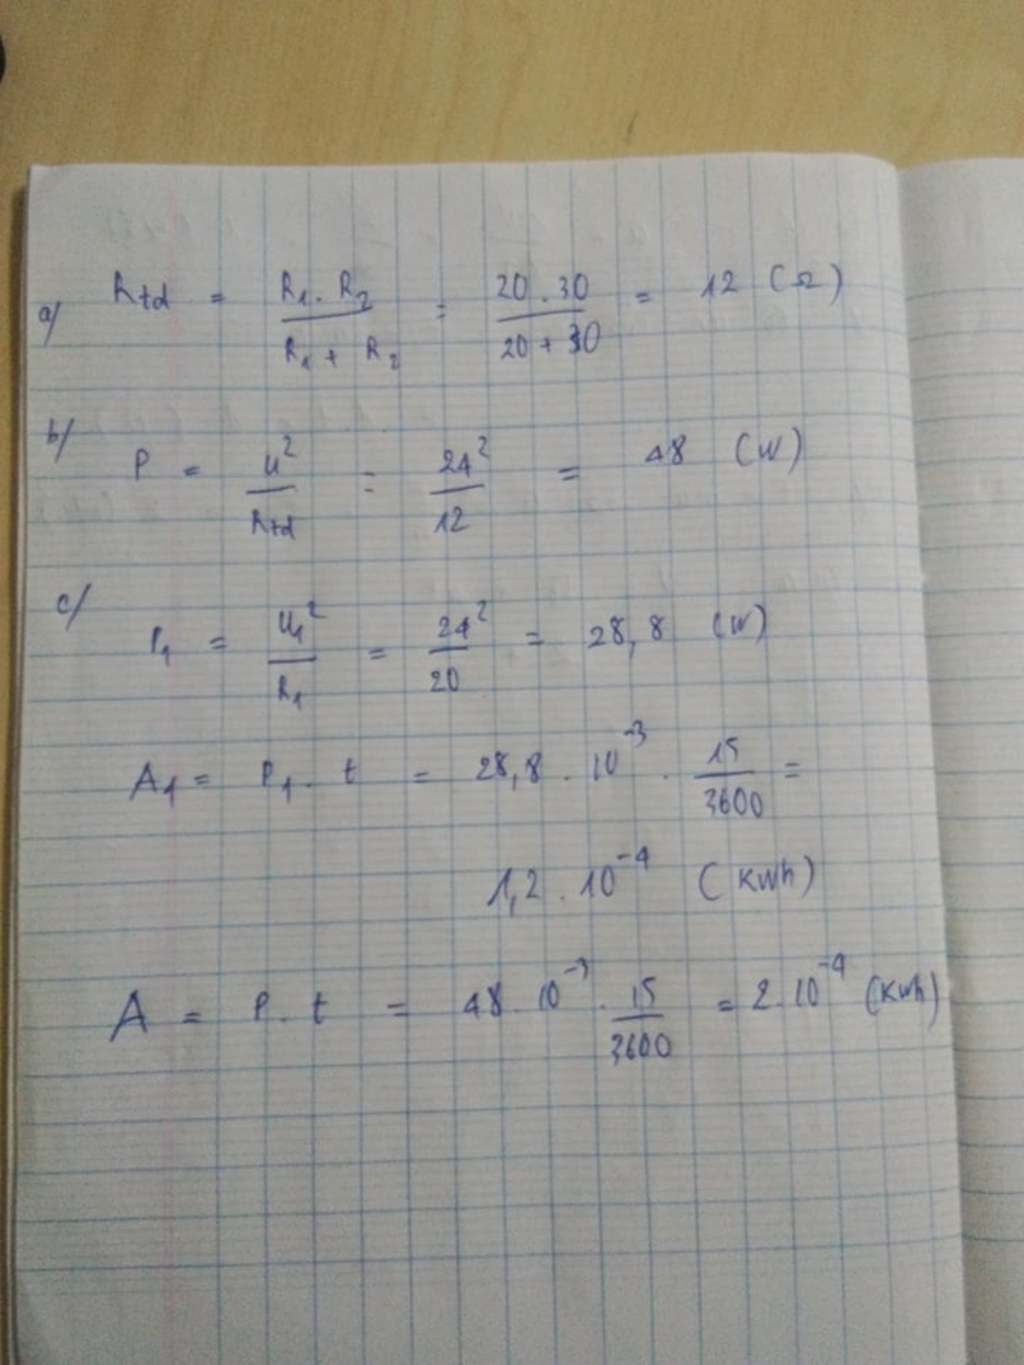 a/ Rtd = R1 . R2 / R1 + R2 = 20 . 30 / 20 + 30 = 12 (Ω)
b/ P = U² / Rtd = 24² / 12 = 48 (W)
c/ P1 = U1² / R1 = 24² / 20 = 28,8 (W)
A1 = P1 . t = 28,8 . 10⁻³ . 15 / 3600 =
1,2 . 10⁻⁴ (KWh)
A = P . t = 48 . 10⁻³ . 15 / 3600 = 2 . 10⁻⁴ (KWh)